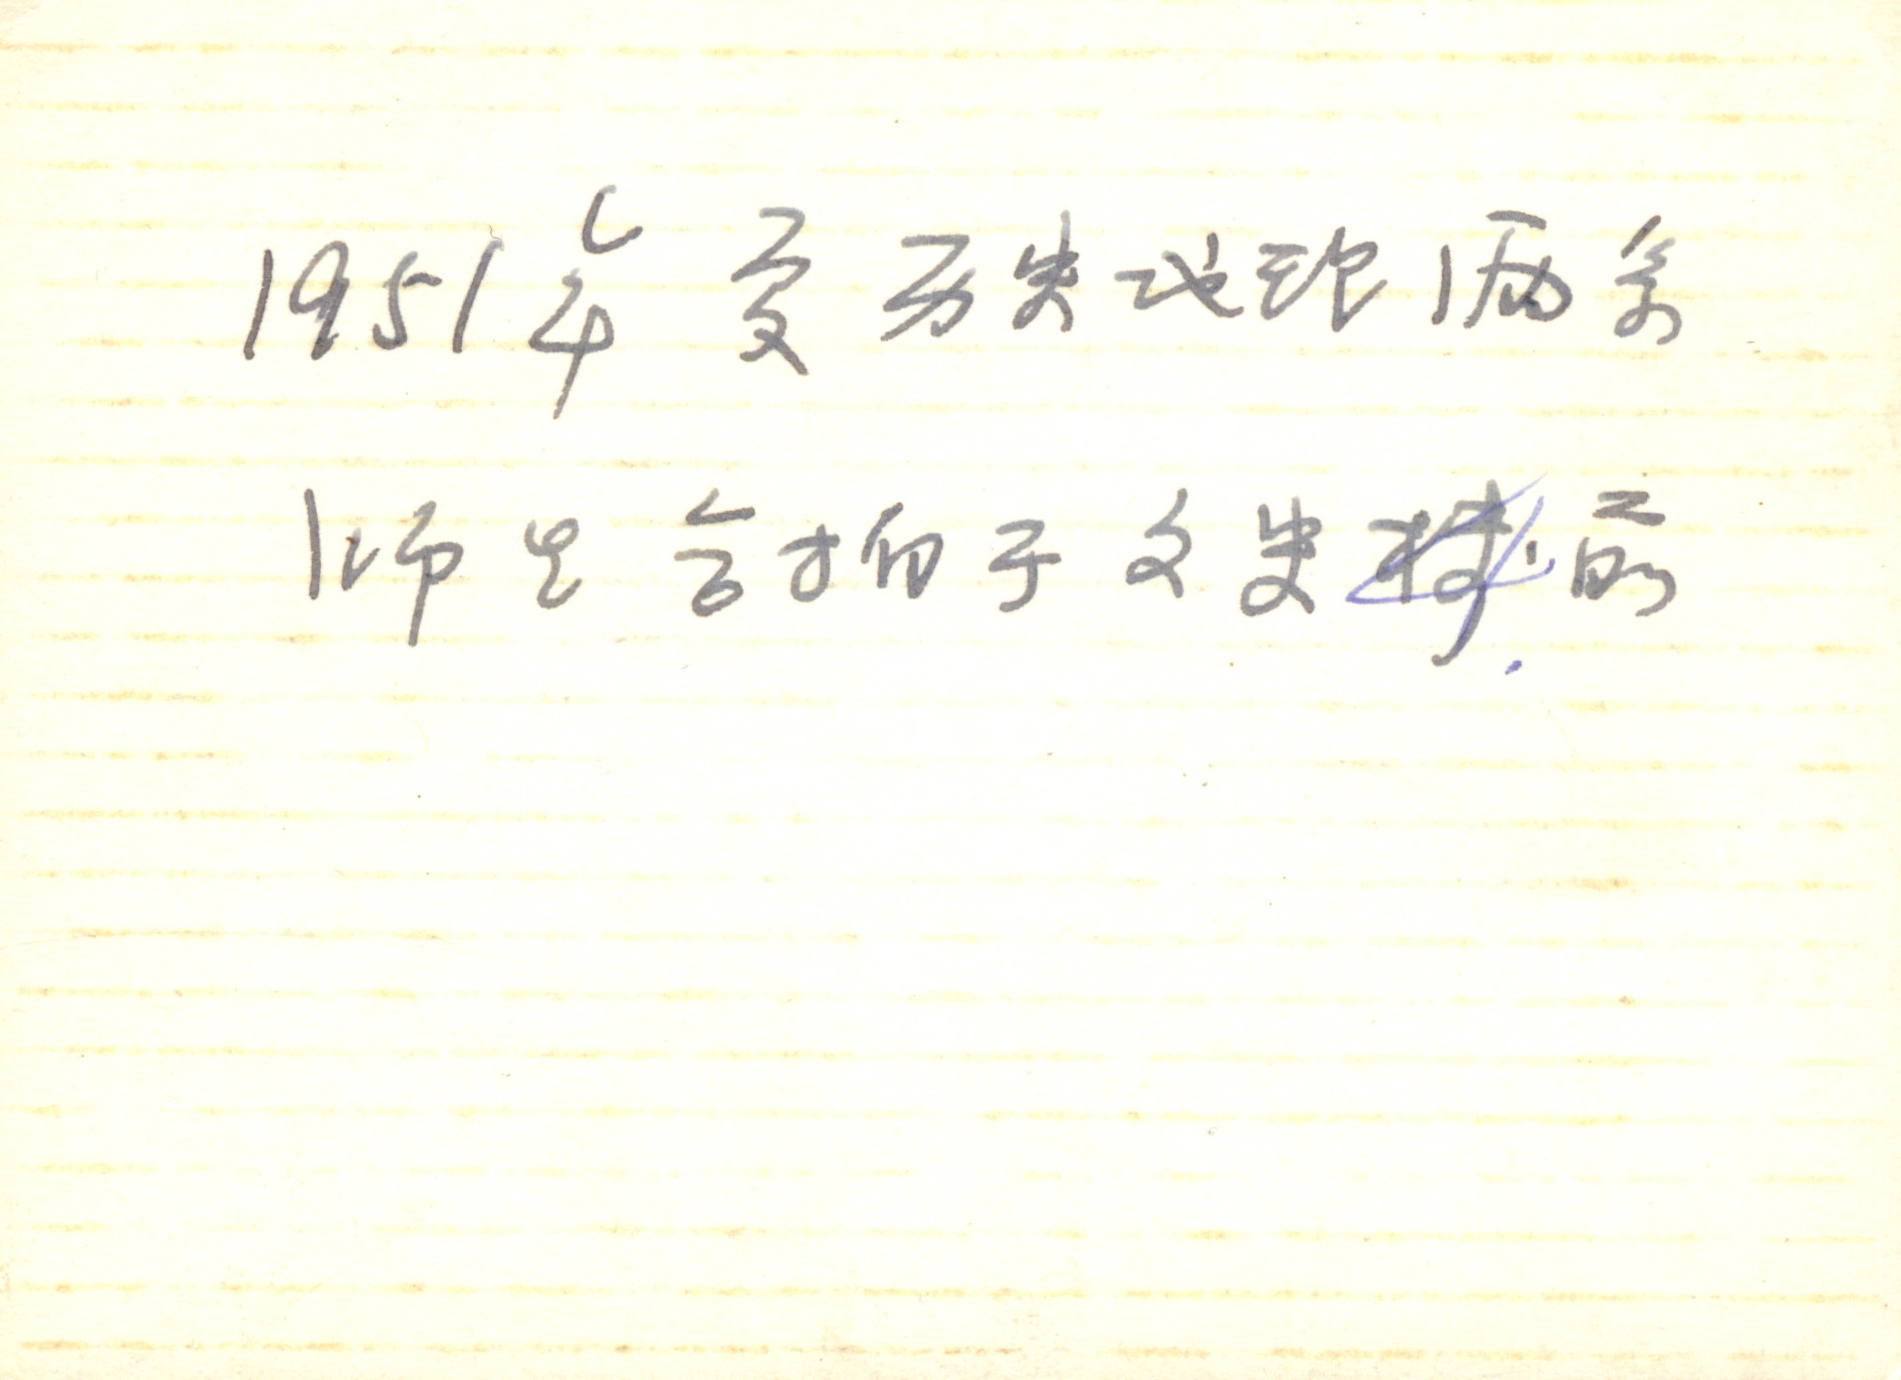 1951年夏历史地理俩系
师生合拍于文史楼前